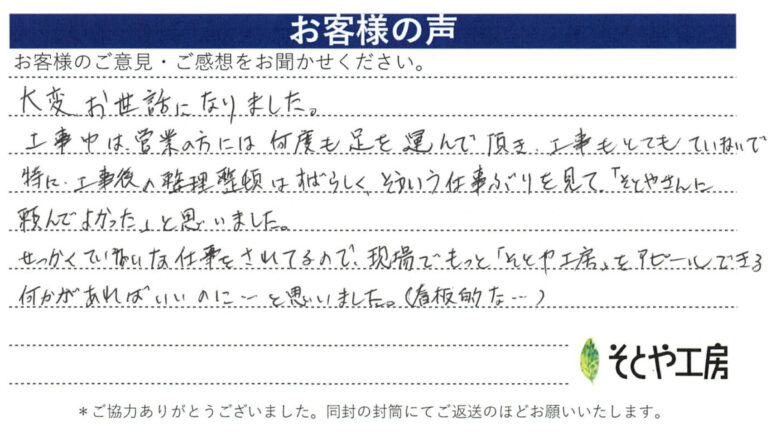 お客様の声
お客様のご意見・ご感想をお聞かせください。
大変 お世話になりました。
工事中は、営業の方には 何度も 足を 運んで 頂き、工事も とても ていねいで
特に、工事後の 整理整頓は すばらしく、そういう仕事ぶりを 見て、「そとやさんに
頼んでよかった」と 思いました。
せっかく ていねいな 仕事を されてるので、現場で もっと「そとや工房」を アピールできる
何かが あれば いいのに… と 思いました。(看板的な…)
そとや工房
*ご協力ありがとうございました。同封の封筒にてご返送のほどお願いいたします。